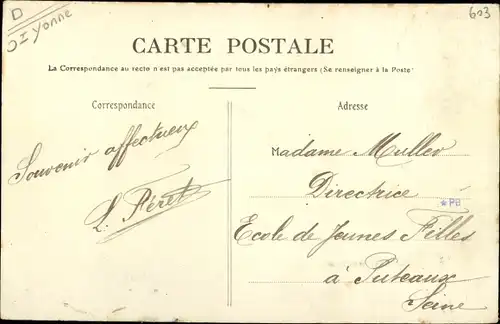 D
Yonne
603
CARTE POSTALE
La Correspondance au recto n'est pas acceptée par tous les pays étrangers (Se renseigner à la Poste)
Correspondance
Adresse
Souvenir affectueux
L. Féret
Madame Muller
Directrice
*PB
Ecole de Jeunes Filles
à Puteaux
Seine